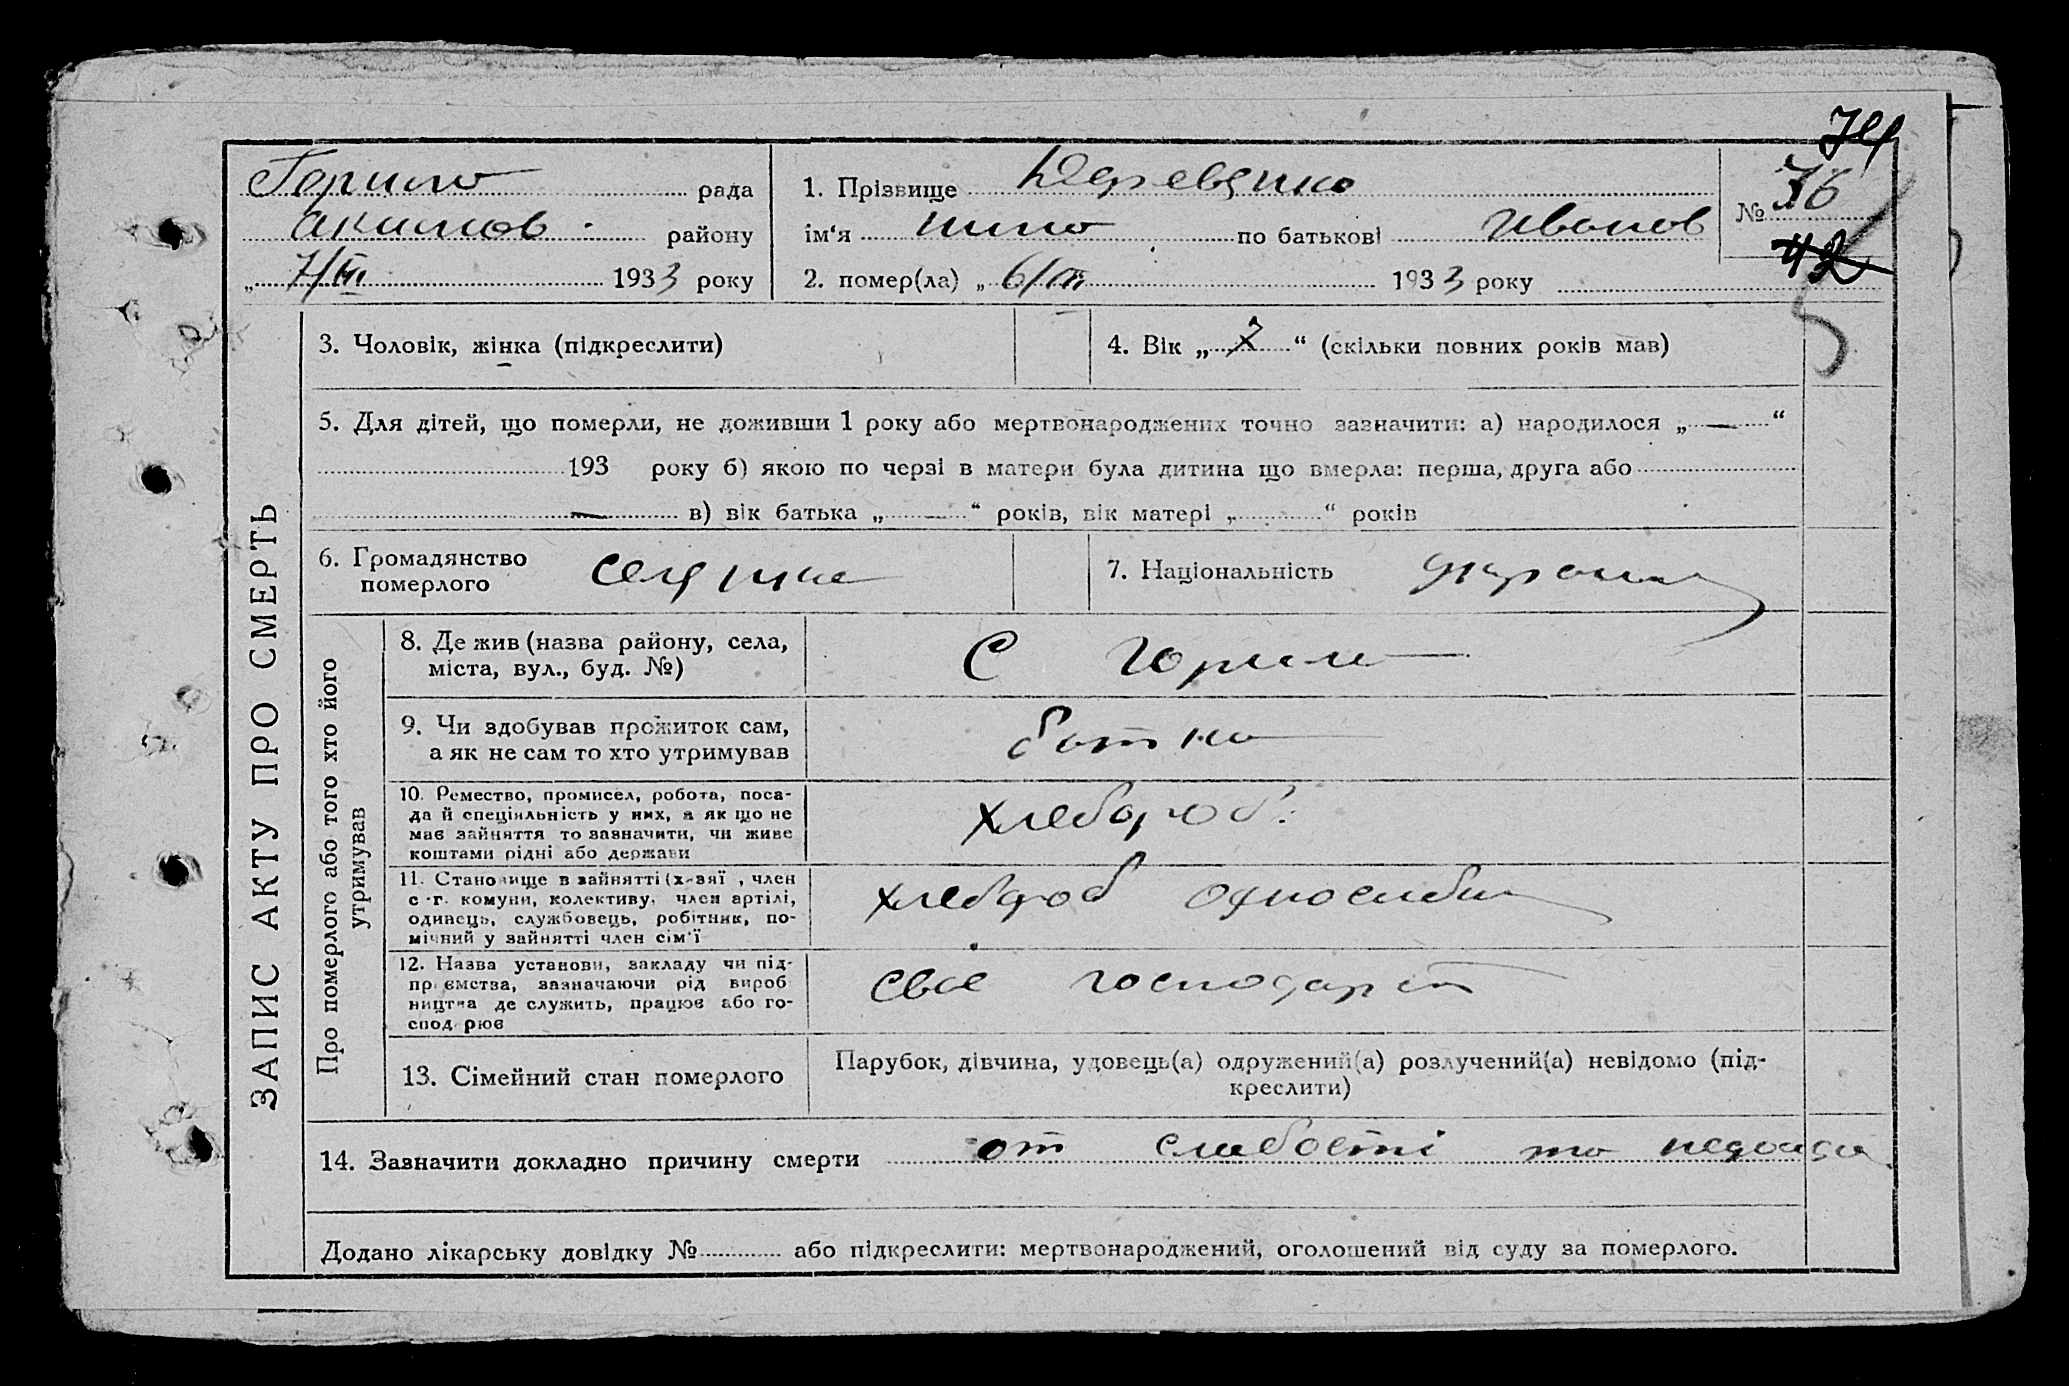 74
Горило рада
Акимов. району
„ 7/III 1933 року
1. Прізвище Деревянко
ім‘я по батькові Иванов
2. помер(ла) „ 6/III 1933 року
№ 76
42
ЗАПИС АКТУ ПРО СМЕРТЬ
3. Чоловік, жінка (підкреслити)
4. Вік „ 7 “ (скільки повних років мав)
5. Для дітей, що померли, не доживши 1 року або мертвонароджених точно зазначити: а) народилося „ — “
193 року б) якою по черзі в матери була дитина що вмерла: перша, друга або
— в) вік батька „ — “ років, вік матері „ “ років
6. Громадянство
померлого
селянка
7. Національність
Про померлого або того хто його
утримував
8. Де жив (назва району, села,
міста, вул., буд. №)
С Горили
9. Чи здобував прожиток сам,
а як не сам то хто утримував
батько
10. Ремество, промисел, робота, поса-
да й спеціяльність у них, а як що не
має зайняття то зазначити, чи живе
коштами рідні або держави
хлебороб.
11. Становище в зайнятті (х-зяї , член
с -г. комуни, колективу, член артілі,
одинець, службовець, робітник, по-
мічний у зайнятті член сім‘ї
хлебороб односибн
12. Назва установи, закладу чи під-
приємства, зазначаючи рід вироб
ництва де служить, працює або го-
спод рює
свое господарст
13. Сімейний стан померлого
Парубок, дівчина, удовець(а) одружений(а) розлучений(а) невідомо (під-
креслити)
14. Зазначити докладно причину смерти от слабості та недоида
Додано лікарську довідку № або підкреслити: мертвонароджений, оголошений від суду за померлого.